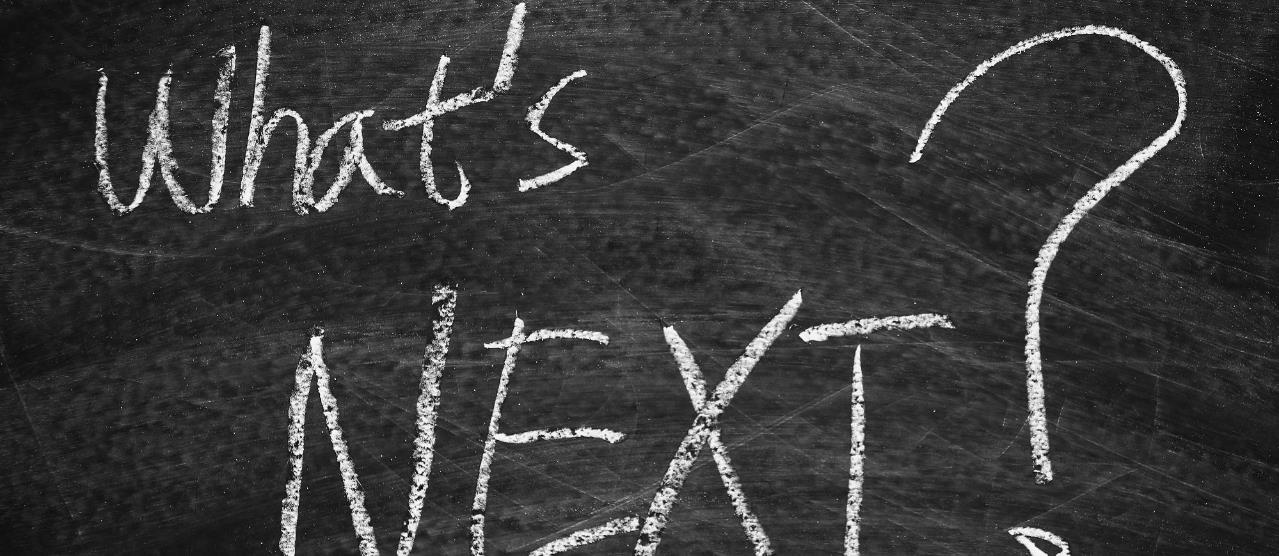 What's
NEXT?